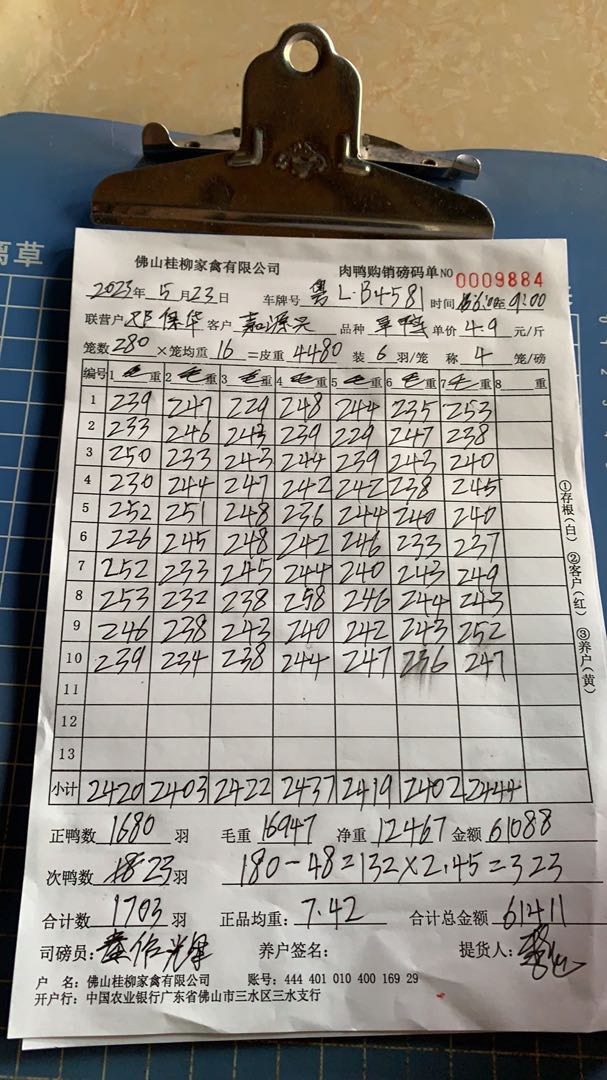 离草
佛山桂柳家禽有限公司 肉鸭购销磅码单 NO 0009884
2023年5月23日 车牌号 粤L·B4581 时间 至9:00
联营户 邓保华 客户 嘉源兴 品种 单价 4.9 元/斤
笼数 280 ×笼均重 16 =皮重 4480 装 6 羽/笼 称 4 笼/磅
编号 1 毛重 2 毛重 3 毛重 4 毛重 5 毛重 6 毛重 7 毛重 8 重
1 239 247 229 248 244 235 253
2 233 246 243 239 229 247 238
3 250 233 243 244 239 243 240
4 230 244 247 242 242 238 245
5 252 251 248 236 244 240 240
6 226 245 248 242 246 233 237
7 252 233 245 244 240 243 249
8 253 232 238 258 246 244 243
9 246 238 243 240 242 243 252
10 239 234 238 244 247 236 247
11
12
13
小计 2420 2403 2422 2437 2419 2402 2444
①存根(白) ②客户(红) ③养户(黄)
正鸭数 1680 羽 毛重 16947 净重 12467 金额 61088
次鸭数 23 羽 180-48=132×2.45=323
合计数 1703 羽 正品均重: 7.42 合计总金额 61411
司磅员: 养户签名: 提货人:
户 名: 佛山桂柳家禽有限公司 账号: 444 401 010 400 169 29
开户行: 中国农业银行广东省佛山市三水区三水支行